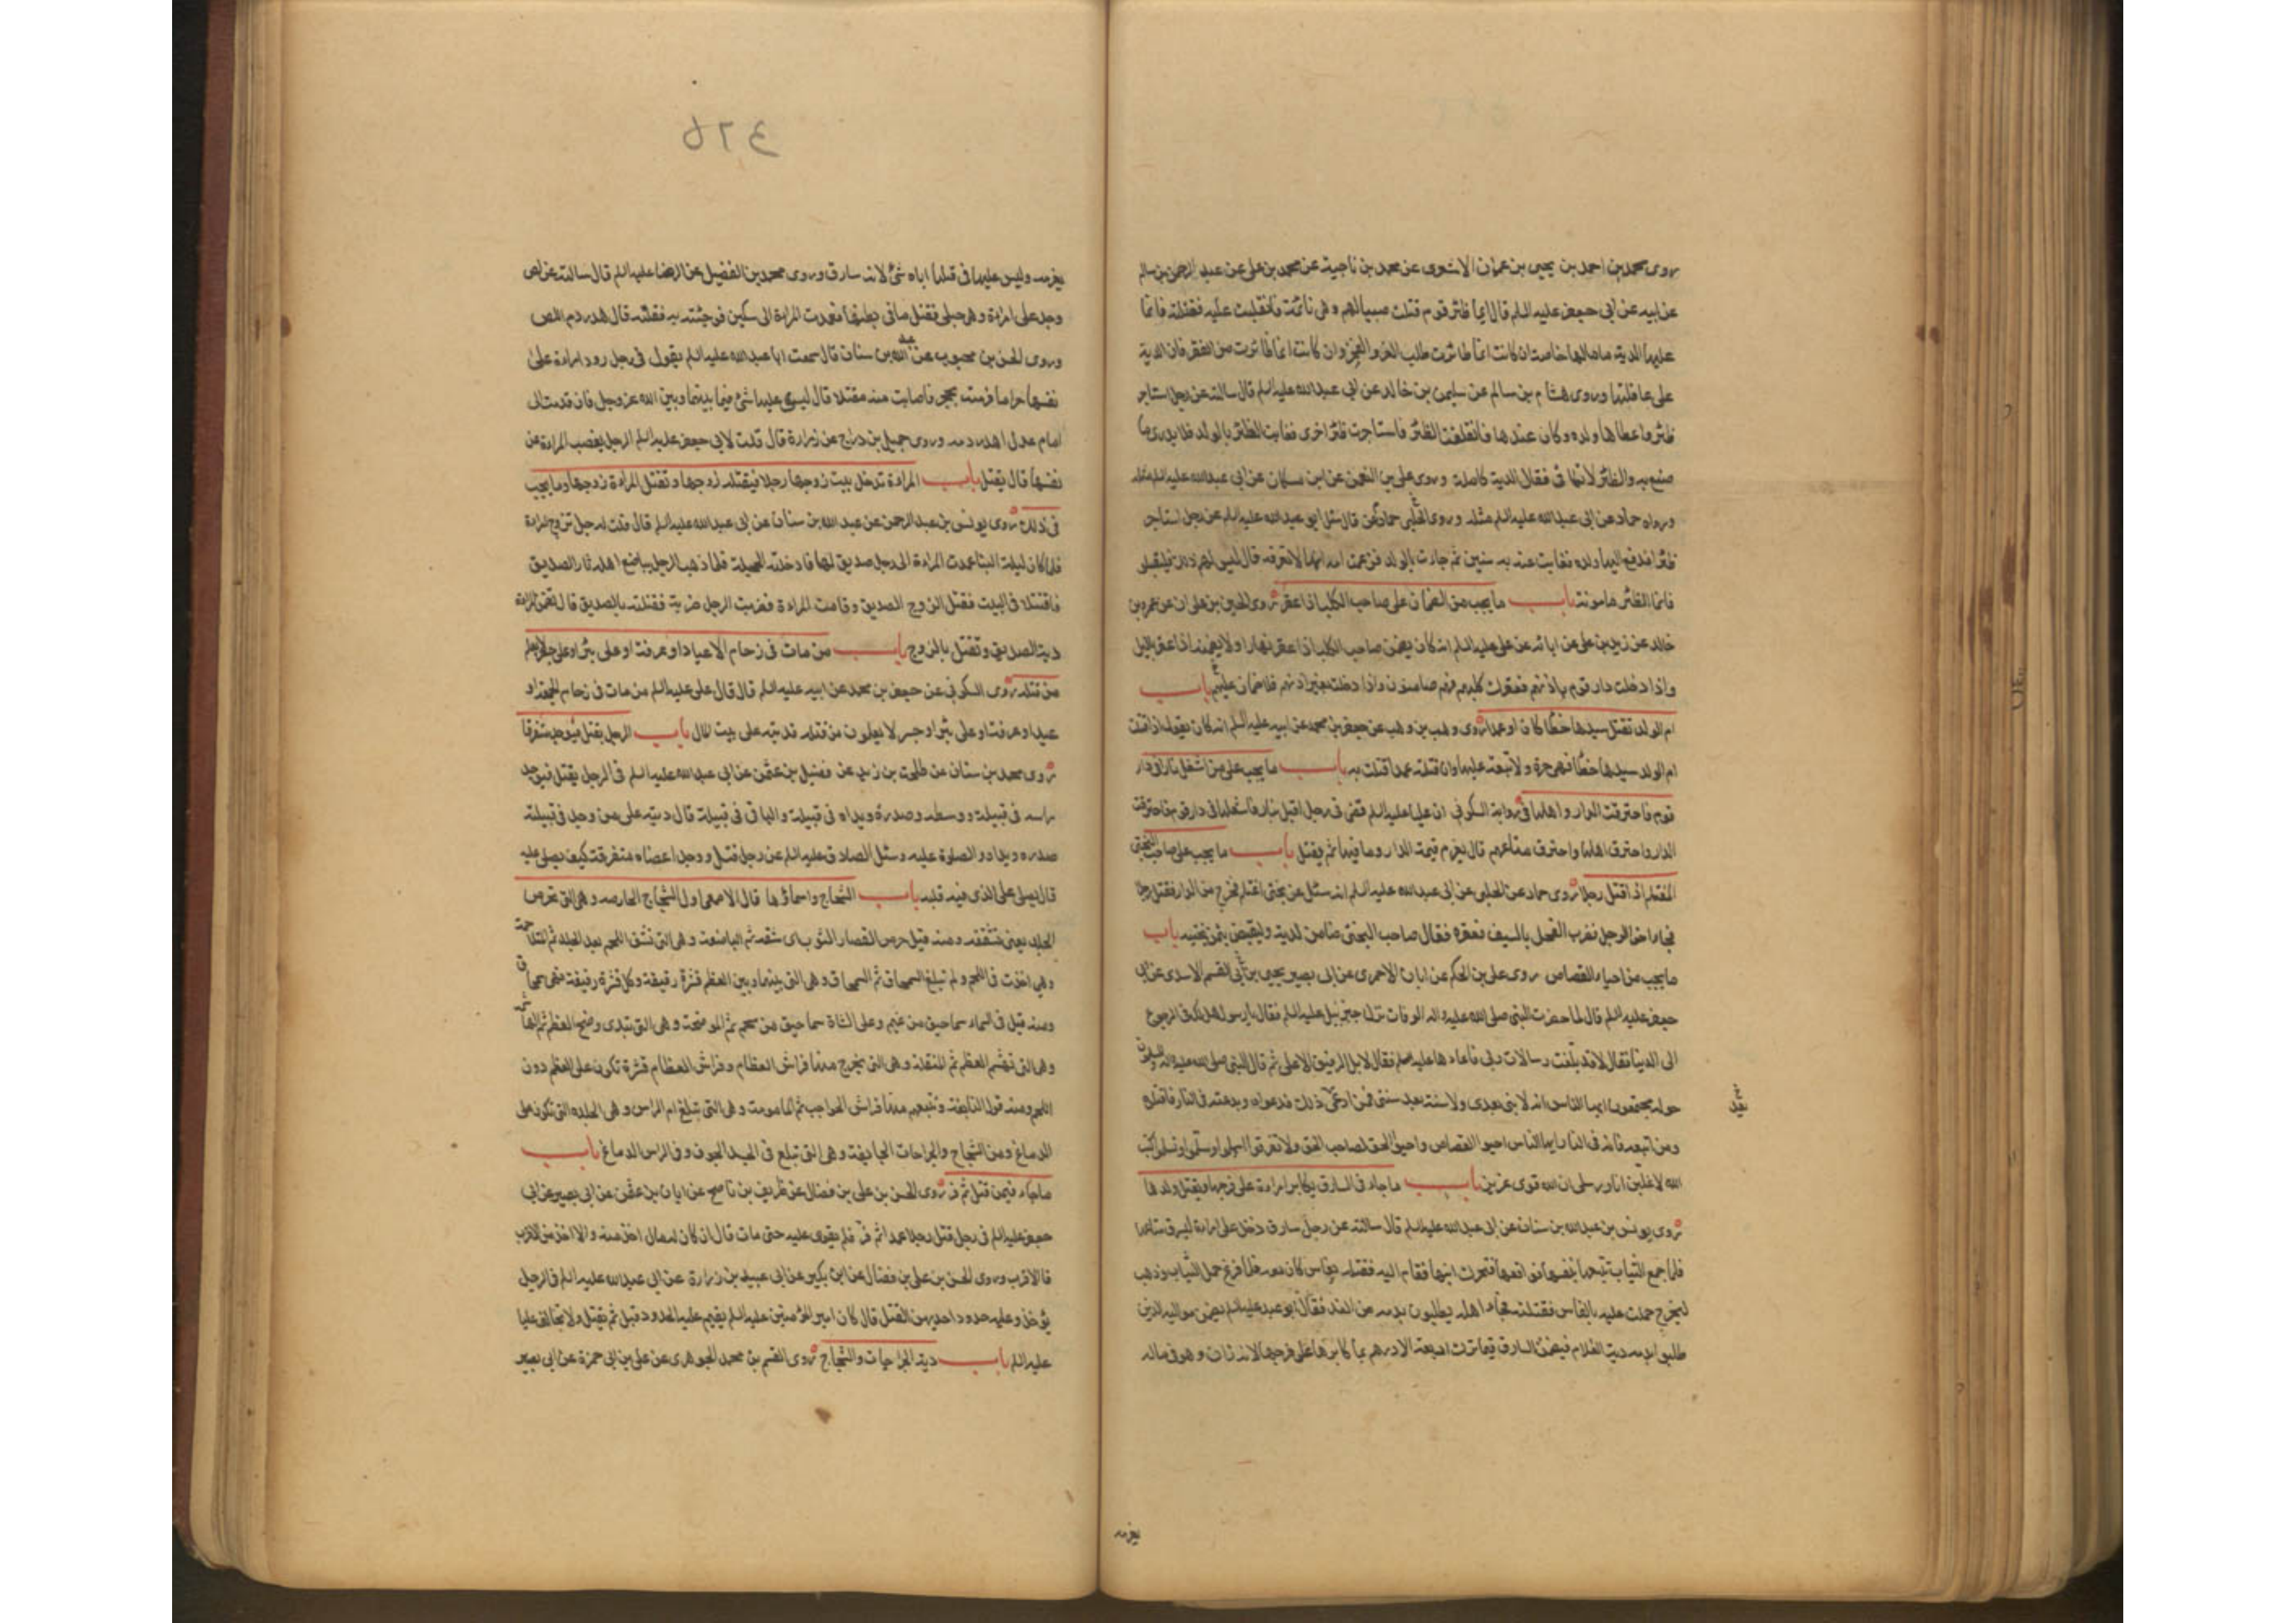 روى محمد بن احمد بن يحيى بن عمران الاشعرى عن محمد بن ناجية عن محمد بن على عن عبد الرحمن بن سالم
عن ابيه عن ابى جعفر عليه السلم قال ايما ظئر قوم قتلت صبيا لهم و هى نائمة فانقلبت عليه فقتلته فانما
عليها الدية من مالها خاصة ان كانت انما ظائرت طلب العز و الفخر وان كانت انما ظائرت من الفقر فان الدية
على عاقلتها وروى هشام بن سالم عن سليمن بن خالد عن ابى عبد الله عليه السلم قال سالته عن رجل استاجر
ظئرا واعطاها ولده وكان عندها فانطلقت الظئر فاستاجرت ظئرا اخرى فغابت الظئر بالولد فلا يدرى ما
صنع به والظئر لا تكافى فقال الدية كاملة وروى على بن النعمن عن ابن مسكان عن ابى عبد الله عليه السلم مثله
ورواه حماد عن ابى عبد الله عليه السلم مثله وروى حماد عن الحلبى قال سئل ابو عبد الله عليه السلم عن رجل استاجر
ظئرا فدفع اليها ولده فغابت عنه به سنين ثم جاءت بالولد فزعمت امه انها لا تعرفه قال ليس لهم ذلك فليقبلوه
فانما الظئر مامونة باب ما يجب من الضمان على صاحب الكلب اذا عقر روى الحسين بن علوان عن عمرو بن
خالد عن زيد بن على عن ابائه عن على عليه السلم انه كان يضمن صاحب الكلب اذا عقر نهارا ولا يضمنه اذا عقر بالليل
واذا دخلت دار قوم باذنهم فعقرك كلبهم فهم ضامنون واذا دخلت بغير اذنهم فلا ضمان عليهم باب
ام الولد تقتل سيدها خطأ كان او عمدا روى وهب بن وهب عن جعفر بن محمد عن ابيه عليه السلم انه كان يقول اذا قتلت
ام الولد سيدها خطأ فهى حرة ولا تبعة عليها وان قتلته عمدا قتلت به باب ما يجب على من اشعل نارا فى دار
قوم فاحترقت الدار واهلها فى رواية السكونى ان عليا عليه السلم قضى فى رجل اقبل بنار فاشعلها فى دار قوم فاحترقت
الدار واحترق اهلها واحترق متاعهم قال يغرم قيمة الدار وما فيها ثم يقتل باب ما يجب على صاحب البختى
المغتلم اذا قتل رجلا روى حماد عن الحلبى عن ابى عبد الله عليه السلم انه سئل عن بختى اغتلم فخرج من الدار فقتل رجلا
فجاء اخ الرجل فضرب الفحل بالسيف فعقره فقال صاحب البختى ضامن لدية ويقبض ثمن بختيه باب
ما يجب من احياء القصاص روى على بن الحكم عن ابان الاحمرى عن ابى بصير يحيى بن ابى القسم الاسدى عن ابى
جعفر عليه السلم قال لما حضرت النبى صلى الله عليه واله الوفات نزل جبرئيل عليه السلم فقال يا رسول الله هل لك فى الرجوع
الى الدنيا فقال لا قد بلغت رسالات ربى فاعادها عليه فقال لا بل الرفيق الاعلى ثم قال النبى صلى الله عليه واله والمسلمون
حوله مجتمعون ايها الناس انه لا نبى بعدى ولا سنة بعد سنتى فمن ادعى ذلك فدعواه وبدعته فى النار فاقتلوه
ومن اتبعه فانه فى النار ايها الناس احيوا القصاص واحيوا الحق لصاحب الحق ولا تفرقوا اسلموا وسلموا تسلموا كتب
الله لاغلبن انا ورسلى ان الله قوى عزيز باب ما جاء فى السارق يكابر امراة على فرجها ويقتل ولدها
روى يونس بن عبد الله بن سنان عن ابى عبد الله عليه السلم قال سالته عن رجل سارق دخل على امراة ليسرق متاعها
فلما جمع الثياب تبعتها نفسه فواقعها فتحرك ابنها فقام اليه فقتله بفاس كان معه فلما فرغ حمل الثياب وذهب
ليخرج حملت عليه بالفاس فقتلته فجاء اهله يطلبون بدمه من الغد فقال ابو عبد عليه السلم يضمن مواليه الذين
طلبوا بدمه دية الغلام ويضمن السارق فيما ترك اربعة الاف درهم بما كابرها على فرجها لانه زان وهو فى ماله
يغرمه
يغرمه وليس عليها فى قتلها اياه شئ لانه سارق وروى محمد بن الفضيل عن الرضا عليه السلم قال سالته عن لص
دخل على امراة وهى حبلى فقتل ما فى بطنها فعمدت المراة الى سكين فوجئته به فقتلته قال هدر دم اللص
وروى الحسن بن محبوب عن عبد الله بن سنان قال سمعت ابا عبد الله عليه السلم يقول فى رجل راود امراة على
نفسها حراما فرمته بحجر فاصابت منه مقتلا قال ليس عليها شئ فيما بينها وبين الله عز وجل فان قدمت الى
امام عدل اهدر دمه وروى جميل بن دراج عن زرارة قال قلت لابى جعفر عليه السلم الرجل يغصب المراة عن
نفسها قال يقتل باب المراة تدخل بيت زوجها رجلا فيقتله زوجها وتقتل المراة زوجها وما يجب
فى ذلك روى يونس بن عبد الرحمن عن عبد الله بن سنان عن ابى عبد الله عليه السلم قال قلت له رجل تزوج امراة
فلما كان ليلة البنا عمدت المراة الى رجل صديق لها فادخلته الحجلة فلما ذهب الرجل يباضع اهله ثار الصديق
فاقتتلا فى البيت فقتل الزوج الصديق وقامت المراة فضربت الرجل ضربة فقتلته بالصديق قال تضمن المراة
دية الصديق وتقتل بالزوج باب من مات فى زحام الاعياد او عرفة او على بئر او على جسر لا يعلم
من قتله روى السكونى عن جعفر بن محمد عن ابيه عليه السلم قال قال على عليه السلم من مات فى زحام الجمعة او
عيد او عرفة او على بئر او جسر لا يعلمون من قتله فديته على بيت المال باب الرجل يقتل فيوجد متفرقا
روى محمد بن سنان عن طلحة بن زيد عن فضيل بن عثمن عن ابى عبد الله عليه السلم فى الرجل يقتل فيوجد
راسه فى قبيلة ووسطه وصدره ويداه فى قبيلة والباقى فى قبيلة قال ديته على من وجد فى قبيلته
صدره ويداه والصلوة عليه وسئل الصادق عليه السلم عن رجل قتل ووجد اعضاه متفرقة كيف يصلى عليه
قال يصلى على الذى فيه قلبه باب الشجاج واسماؤها قال الاصمعى اول الشجاج الحارصة وهى التى تحرص
الجلد يعنى تشققه ومنه قيل حرص القصار الثوب اى شقه ثم الباضعة وهى التى تشق اللحم بعد الجلد ثم المتلاحمة
وهى اخذت فى اللحم ولم تبلغ السمحاق ثم السمحاق وهى التى بينها وبين العظم قشرة رقيقة وكل قشرة رقيقة فهى سمحاق
ومنه قيل فى السماء سماحيق من غيم وعلى الشاة سماحيق من شحم ثم الموضحة وهى التى تبدى وضح العظم ثم الهاشمة
وهى التى تهشم العظم ثم المنقلة وهى التى يخرج منها فراش العظام وفراش العظام قشرة تكون على العظم دون
اللحم ومنه قول النابغة وتتبعهم منها فراش الحواجب ثم المامومة وهى التى تبلغ ام الراس وهى الجلدة التى تكون على
الدماغ ومن الشجاج والجراحات الجايفة وهى التى تبلغ فى الجسد الجوف وفى الراس الدماغ باب
ما جاء فيمن قتل ثم فر روى الحسن بن على بن فضال عن ظريف بن ناصح عن ابان بن عثمن عن ابى بصير عن ابى
جعفر عليه السلم فى رجل قتل رجلا عمدا ثم فر فلم يقدر عليه حتى مات قال ان كان له مال اخذ منه والا اخذ من الاقرب
فالاقرب وروى الحسن بن على بن فضال عن ابن بكير عن ابى عبيد بن زرارة عن ابى عبد الله عليه السلم فى الرجل
يؤخذ وعليه حدود احديهن القتل قال كان امير المؤمنين عليه السلم يقيم عليه الحدود قبل ثم يقتل ولا تخالف عليا
عليه السلم باب دية الجراحات والشجاج روى القسم بن محمد الجوهرى عن على بن ابى حمزة عن ابى بصير